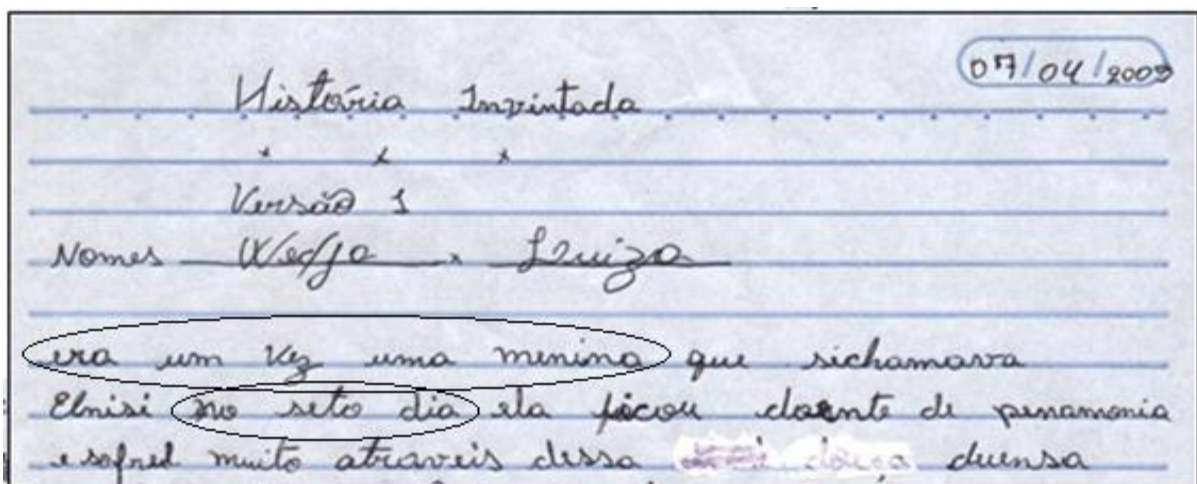 07/04/2009
História Invintada
x x x
Versão 1
Nomes Wedja x Luiza
era um vez uma minina que sichamava
Elnisi no seto dia ela ficou doente de penamonia
e sofred muito atraveis dessa duensa